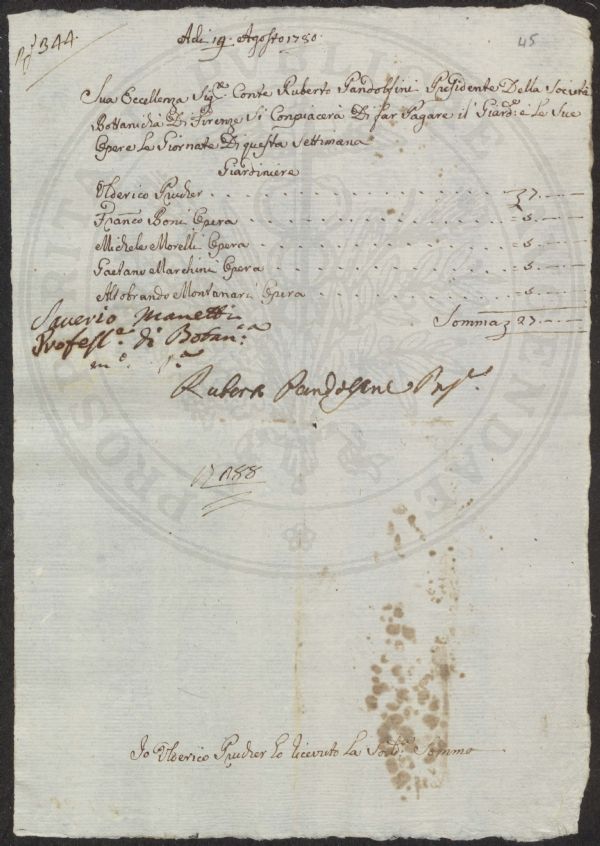 N° 344.
45
Adi 19. Agosto 1780.
Sua Eccellenza Sig.re Conte Ruberto Pandolfini Presidente Della Società
Bottanicha Di Firenze Si Conpiacerà Di far Pagare il Giard.e e Le Sue
Opere Le Giornate Di questa Settimana
Giardiniere
Ulderico Prucher
Franco Boni Opera
Michele Morelli Opera
Gaetano Marchini Opera
Altobrando Montenari Opera
Somma 27.
Saverio Manetti
Profess.e di Botan.ca
Ruberto Pandolfini Pres.e
Io Ulderico Prucher ho ricevuto La Sod.a Somma
PROSPERITATI AUGENDAE